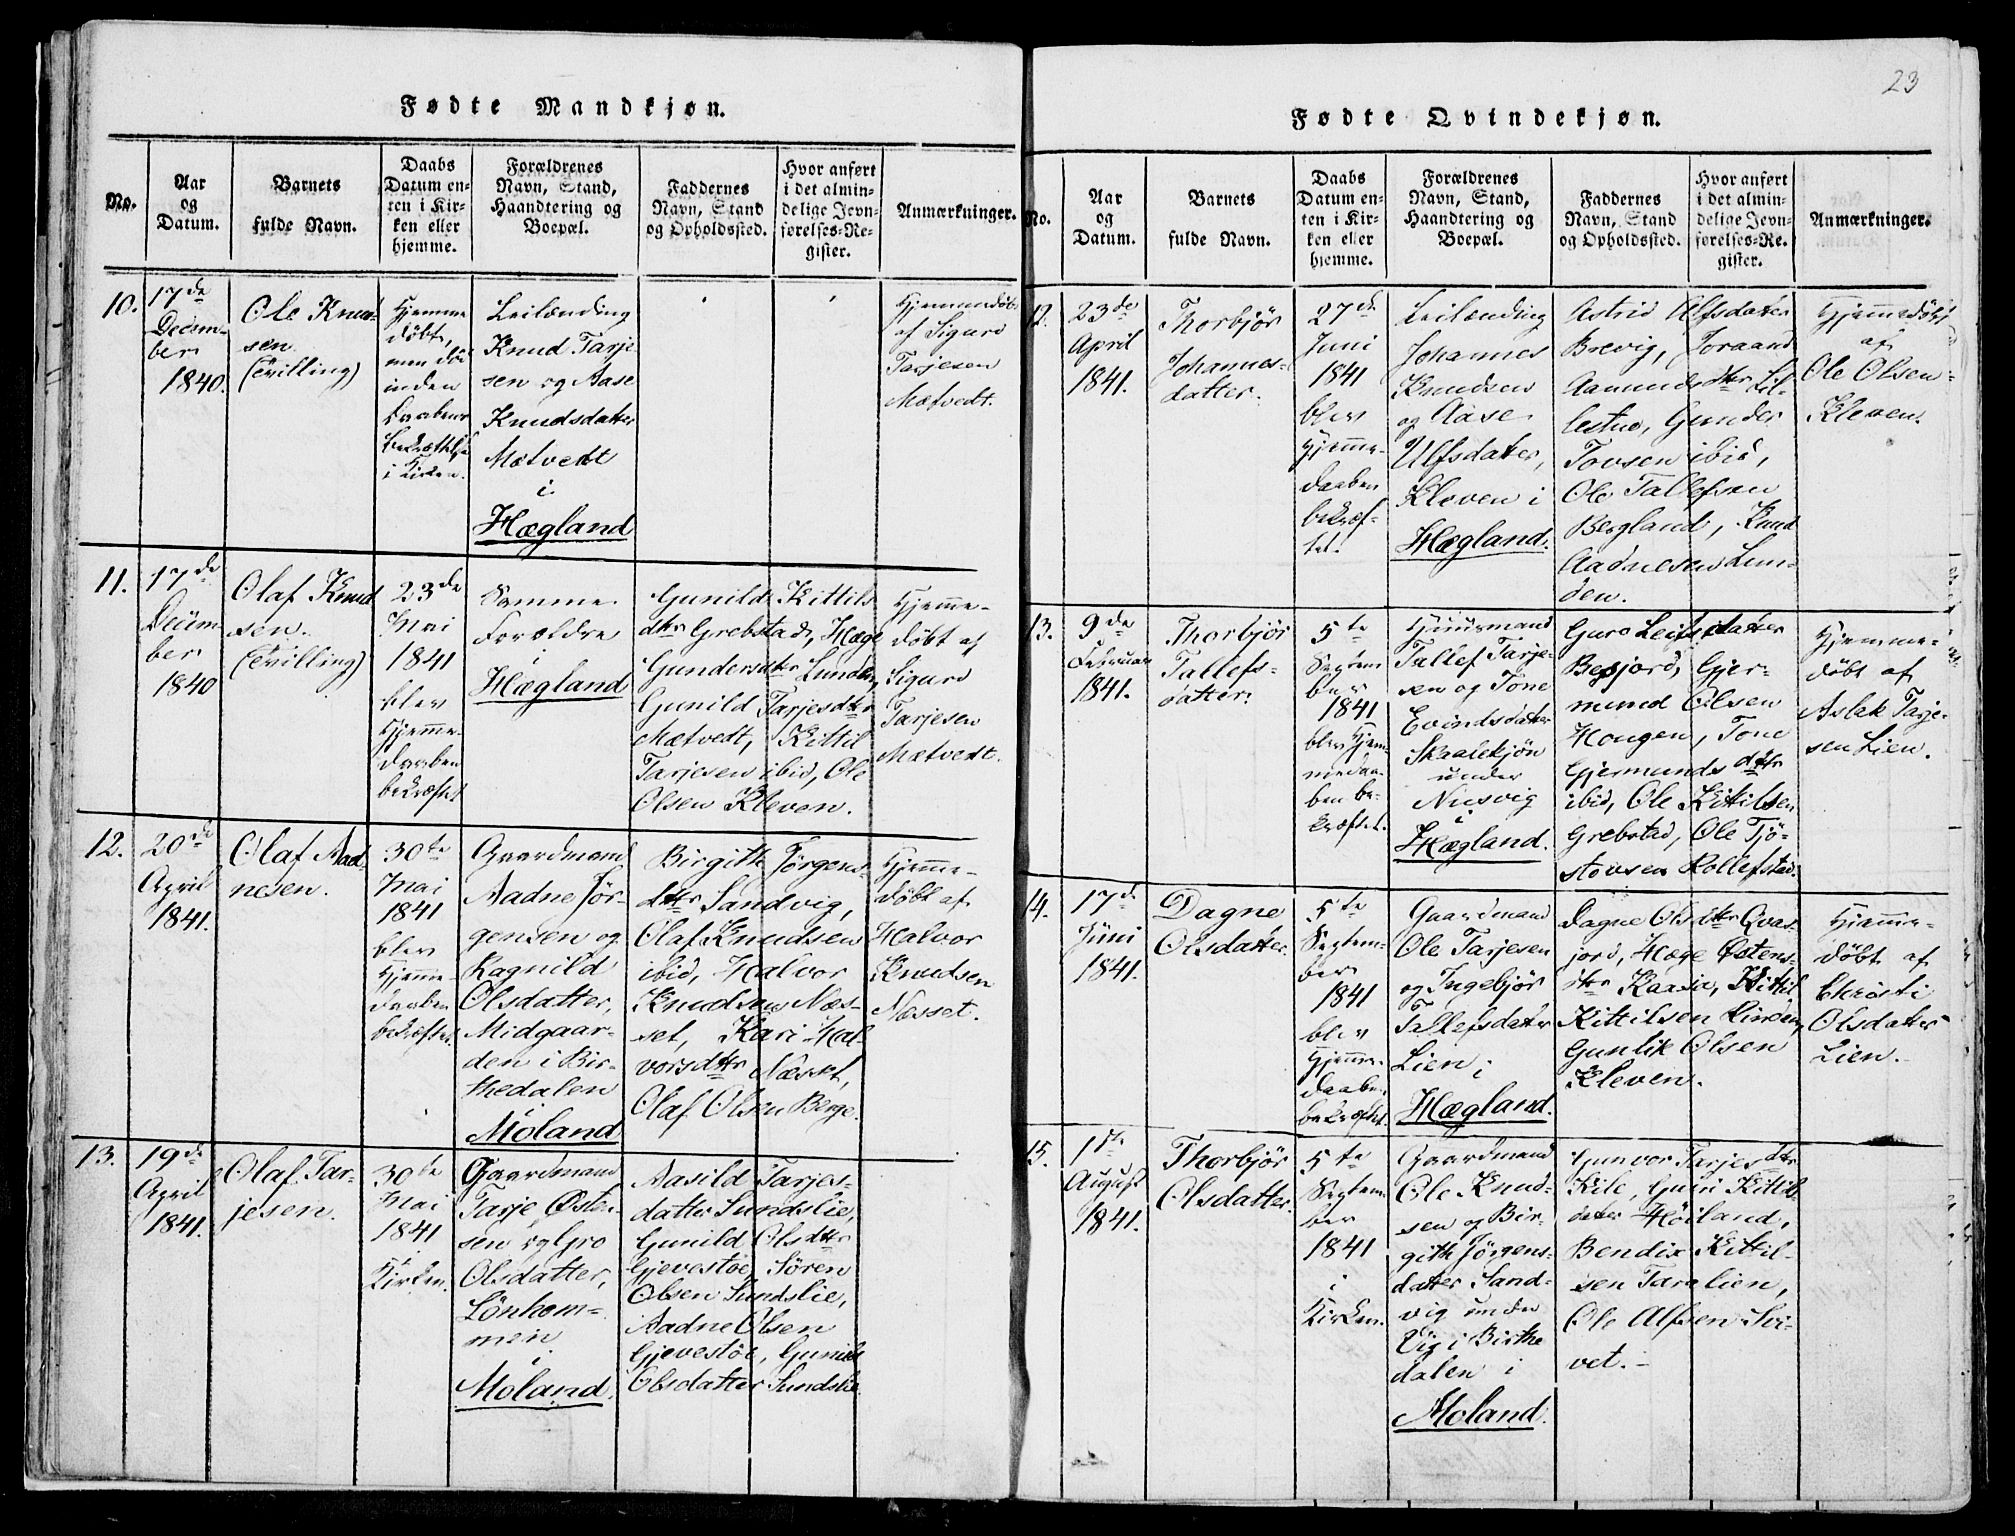 23
Fødte Mandkjøn.
No.
Aar
og
Datum.
Barnets
fulde Navn.
Daabs
Datum en-
ten i Kir-
ken eller
hjemme.
Forældrenes
Navn, Stand,
Haandtering og
Boepæl.
Faddernes
Navn, Stand
og Opholdssted.
Hvor anført
i det almin-
delige Jevn-
førelses-Re-
gister.
Anmærkninger.
10.
17de
Decem-
ber
1840.
Ole Knud-
sen
(Tvilling)
Hjemme
døbt,
men død
inden
Daabens
bekræftelse
i Kirken.
Leilænding
Knud Tarje
sen og Aase
Knudsdatter
Mætvedt
i
Hægland
Hjemmedøbt
af Sigurd
Tarjesen
Mætvedt.
11.
17de
Decem-
ber
1840
Olaf Knud
sen.
(Tvilling)
23de
Mai
1841
blev
Hjemme-
daaben
bekræftet
Samme
Forældre
i
Hægland
Gunild Kittils
dtr Grebstad, Hæge
Gundersdatr Lunden,
Gunild Tarjesdtr
Mætvedt, Kittil
Tarjesen ibid, Ole
Olsen Kleven.
Hjemme-
døbt af
Sigurd
Tarjesen
Mætvedt.
12.
20de
April
1841.
Olaf Aad
nesen.
30te
Mai
1841
blev
Hjemme-
daaben
bekræftet.
Gaardmand
Aadne Jør-
gensen og
Ragnild
Olsdatter,
Midgaar-
den i Bir-
thedalen
i
Moland
Birgith Jørgens-
dtr Sandvig,
Olaf Knudsen
ibid, Halvor
Knudsen Næs-
set, Kari Hal-
vorsdtr Næsset,
Olaf Olsen Berge.
Hjemme-
døbt af
Halvor
Knudsen
Næsset.
13.
19de
April
1841.
Olaf Tar-
jesen.
30te
Mai
1841
i
Kirken.
Gaardmand
Tarje Østen-
sen og Gro
Olsdatter,
Lønhom-
men.
i
Moland.
Aasild Tarjes-
datter Sundslie,
Gunild Olsdtr
Gjevestøe, Søren
Olsen Sundslie,
Aadne Olsen
Gjevestøe, Gunild
Olsdatter Sundslie
Fødte Qvindekjøn.
No.
Aar
og
Datum.
Barnets
fulde Navn.
Daabs
Datum en-
ten i Kir-
ken eller
hjemme.
Forældrenes
Navn, Stand,
Haandtering og
Boepæl.
Faddernes
Navn, Stand
og Opholdssted.
Hvor anført
i det almin-
delige Jevn-
førelses-Re-
gister.
Anmærkninger.
12.
23de
April
1841.
Thorbjør
Johannes-
datter.
27de
Juni
1841
blev
Hjemme-
daaben
bekræf-
tet.
Leilænding
Johannes
Knudsen
og Aase
Ulfsdatter,
Kleven i
Hægland.
Astrid Alfsdatter
Brevig, Joraand
Aamundsdtr Lil-
lestue, Gunder
Tovsen ibid,
Ole Tallefsen
Bergland, Knud
Aadnesen Lun-
den.
Hjemmedøbt
af
Ole Olsen
Kleven.
13.
9de
Februar
1841.
Thorbjør
Tallefs-
datter.
5te
Septem
ber
1841
blev Hjem-
medaa-
ben be-
kræftet.
Huusmand
Tallef Tarje-
sen og Tone
Evindsdatter
Skaalekjøn
under
Nusvig
i
Hægland.
Guro Leifsdatter
Besjord, Gjer-
mund Olsen
Hougen, Tone
Gjermundsdtr
ibid, Ole Kittilsen
Grebstad, Ole Tjø-
stovsen Rollefstad.
Hjemme-
døbt af
Aslak Tarje-
sen Lien.
14.
17de
Juni
1841.
Dagne
Olsdatter.
5te
Septem-
ber
1841
blev
Hjemme-
daaben
bekræftet.
Gaardmand
Ole Tarjesen
og Ingebjør
Tallefsdatter
Lien i
Hægland.
Dagne Olsdtr Qvas-
jord, Hæge Østens-
dtr Kaasa, Kittil
Kittilsen Linden,
Gunlik Olsen
Kleven.
Hjemme-
døbt af
Christi
Olsdatter
Lien.
15.
1ste
August
1841.
Thorbjør
Olsdatter.
5te
Septem-
ber
1841
i
Kirken.
Gaardmand
Ole Knud-
sen og Bir-
gith Jørgens-
datter Sand-
vig under
Vig i Birthe
dalen i
Moland.
Gunvor Tarjesdtr
Kile, Guri Kittils
datter Høiland,
Bendix Kittil-
sen Taralien,
Ole Alfsen Svi-
vet.